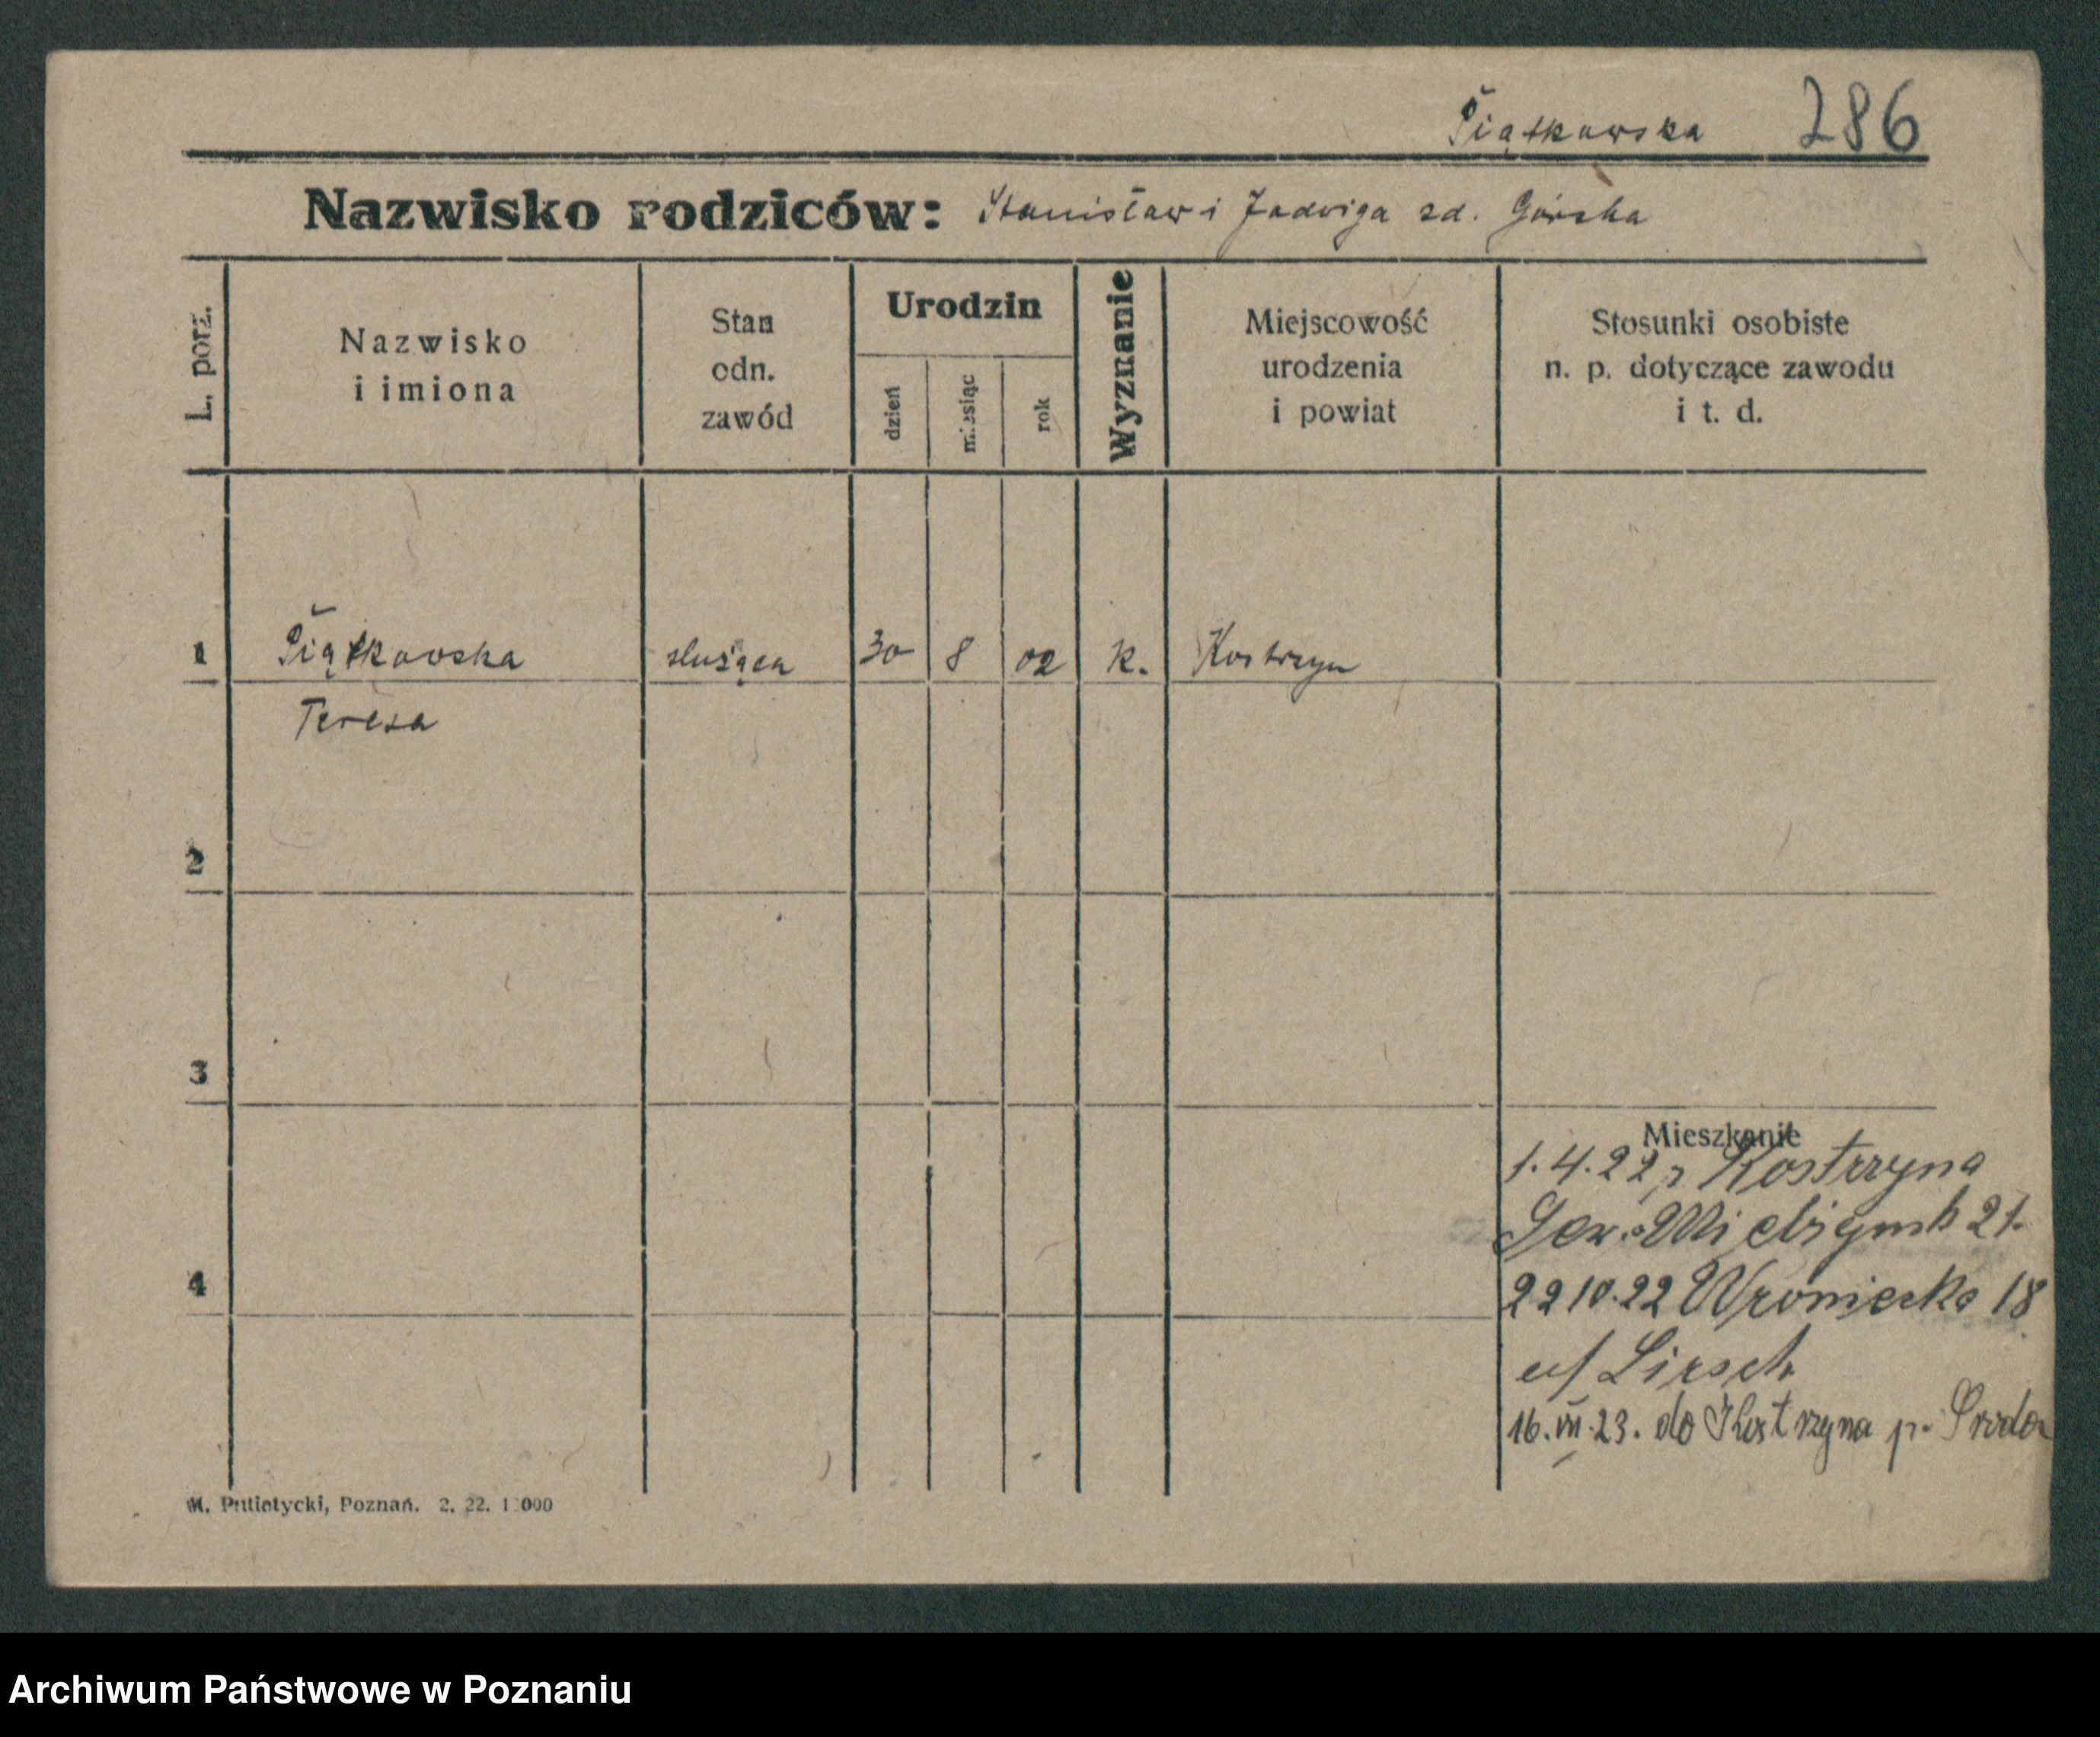 Piątkowska 286
Nazwisko rodziców: Stanisław i Jadwiga zd. Górska
L. porz.
Nazwisko
i imiona
Stan
odn.
zawód
Urodzin
dzień
miesiąc
rok
Wyznanie
Miejscowość
urodzenia
i powiat
Stosunki osobiste
n. p. dotyczące zawodu
i t. d.
1 Piątkowska służąca 30 8 02 k. Kostrzyn
Teresa
2
3
Mieszkanie
1.4.22 z Kostrzyna
21.
4
22 10.22 Wroniecka 18
u/ Lirsch
16.VII.23. do Kostrzyna p. Środa
Poznań. 2. 22.
Archiwum Państwowe w Poznaniu